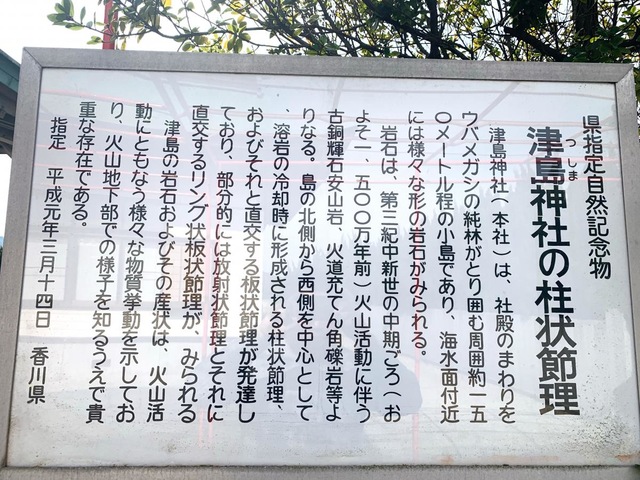 県指定自然記念物
津島神社の柱状節理
つしま
津島神社(本社)は、社殿のまわりを
ウバメガシの純林がとり囲む周囲約一五
〇メートル程の小島であり、海水面付近
には様々な形の岩石がみられる。
岩石は、第三紀中新世の中期ごろ(お
よそ一、五〇〇万年前)火山活動に伴う
古銅輝石安山岩、火道充てん角礫岩等よ
りなる。島の北側から西側を中心として
、溶岩の冷却時に形成される柱状節理、
およびそれと直交する板状節理が発達し
ており、部分的には放射状節理とそれに
直交するリング状板状節理が、みられる
津島の岩石およびその産状は、火山活
動にともなう様々な物質挙動を示してお
り、火山地下部での様子を知るうえで貴
重な存在である。
指定 平成元年三月十四日 香川県